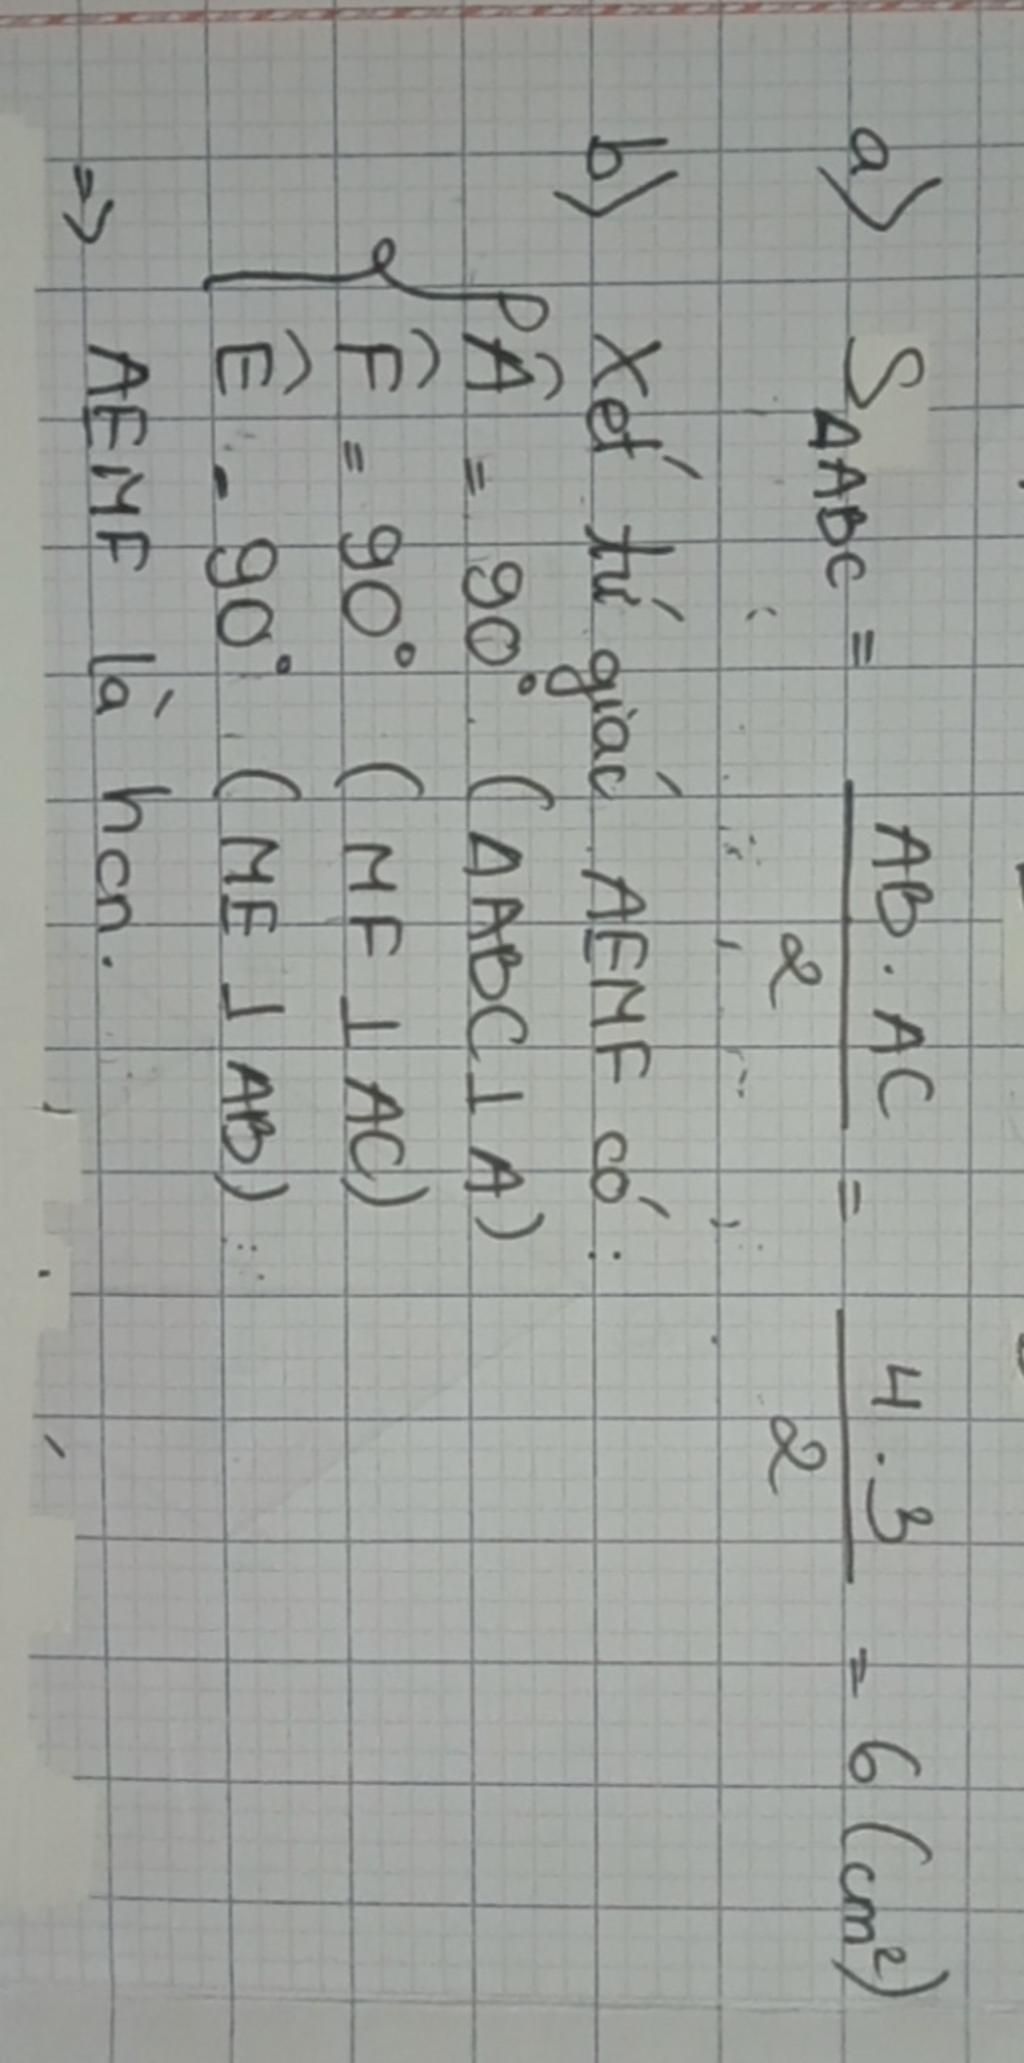 a) S△ABC = AB . AC / 2 = 4 . 3 / 2 = 6 (cm²)
b) Xét tứ giác AEMF có :
Â = 90° (△ABC ⊥ A)
F̂ = 90° (MF ⊥ AC)
Ê = 90° (ME ⊥ AB)
=> AEMF là hcn.